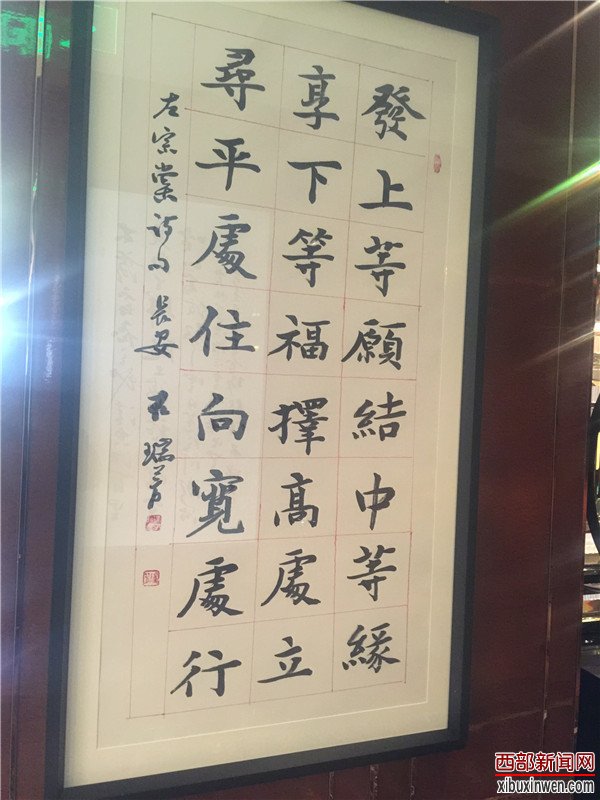 發上等願結中等緣
享下等福擇高處立
尋平處住向寬處行
左宗棠詩句 長安 石瑞芳
西部新闻网
xibuxinwen.com